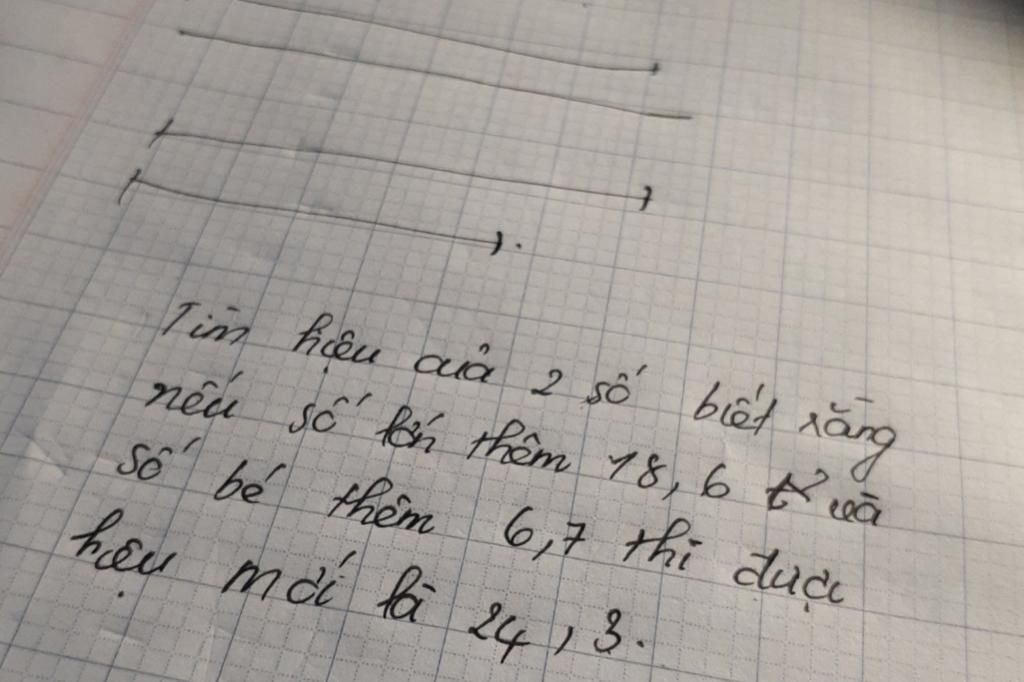 Tìm hiệu của 2 số biết rằng
nếu số lớn thêm 18,6 và
số bé thêm 6,7 thì được
hiệu mới là 24,3.